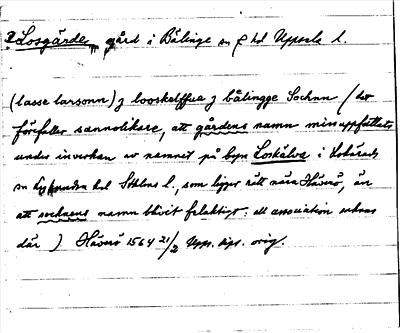 ? Losgärde, gård i Bälinge sn o hd Uppsala l.
(lasse larsonn) j booskelffua j bålingge Sochnn / det
förefaller sannolikare, att gårdens namn missuppfattats
under inverkan av namnet på byn Loskälva i
sn hd Sthlms l., som ligger rätt nära Häverö, än
att socknens namn blivit felaktigt: all association saknas
där ) Häverö 1564 21/2 Upps. dipl. orig.